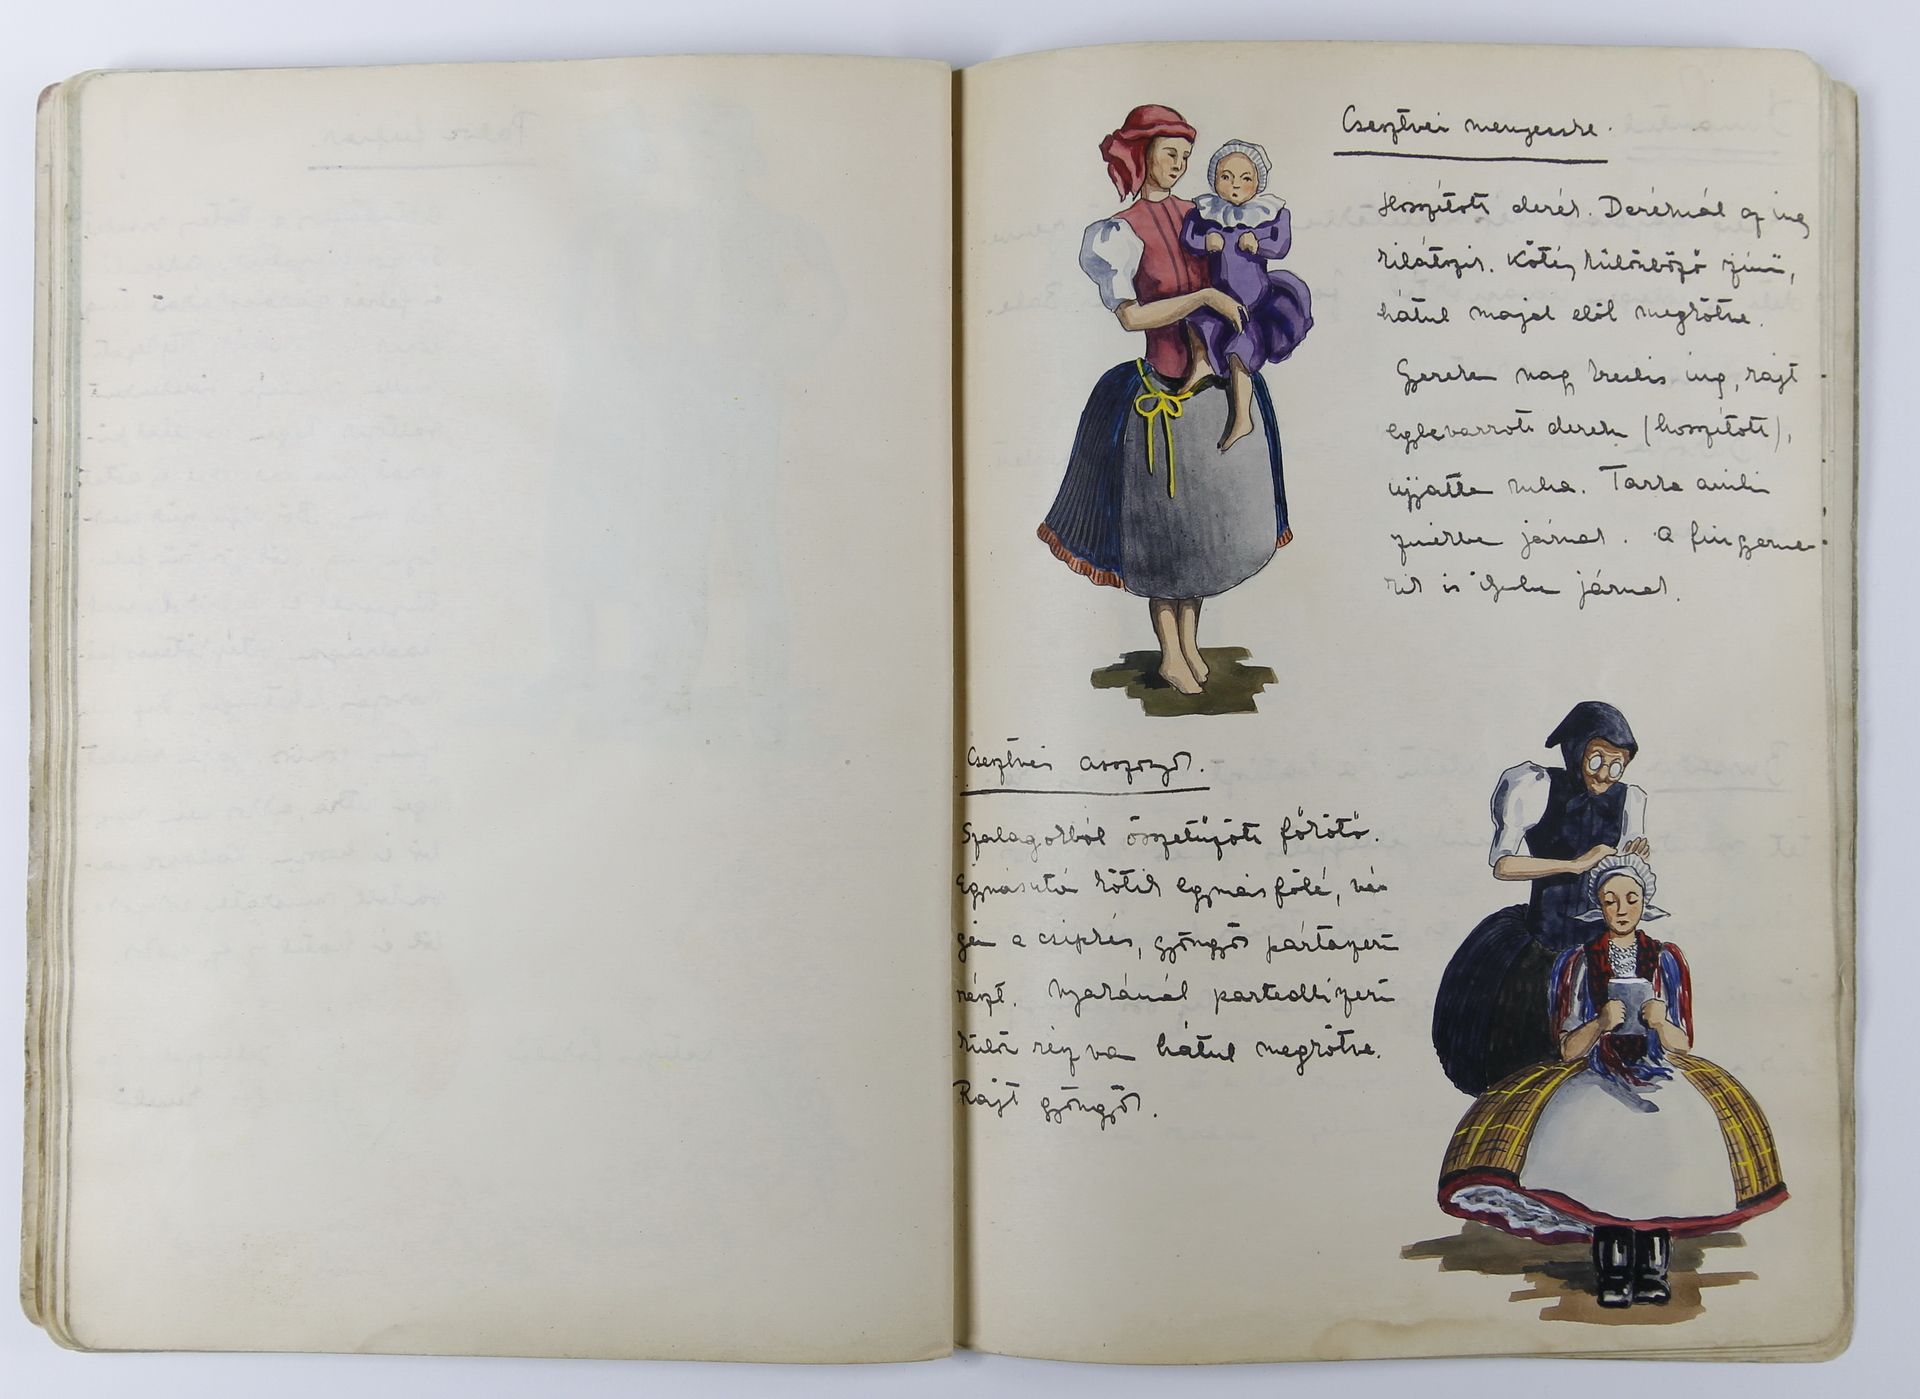 Csesztvei menyecske.
Hosszított derék. Deréknál az ing
kilátszik. Kötény különböző színű,
hátul majd elöl megkötve.
Gyereken nagy kreklis ing, rajt
egybevarrott derék (hosszított),
ujjatta ruha. Tarka
járnak. A fiúgyerme-
kek is járnak.
Csesztvei asszonyok.
Szalagokból összetűzött főkötő.
Egymásután kötik egymás fölé, vé-
gén a csipkés, gyöngyös pártaszerű
részt. Nyakánál partedliszerű
külön rész van hátul megkötve.
Rajt gyöngyök.